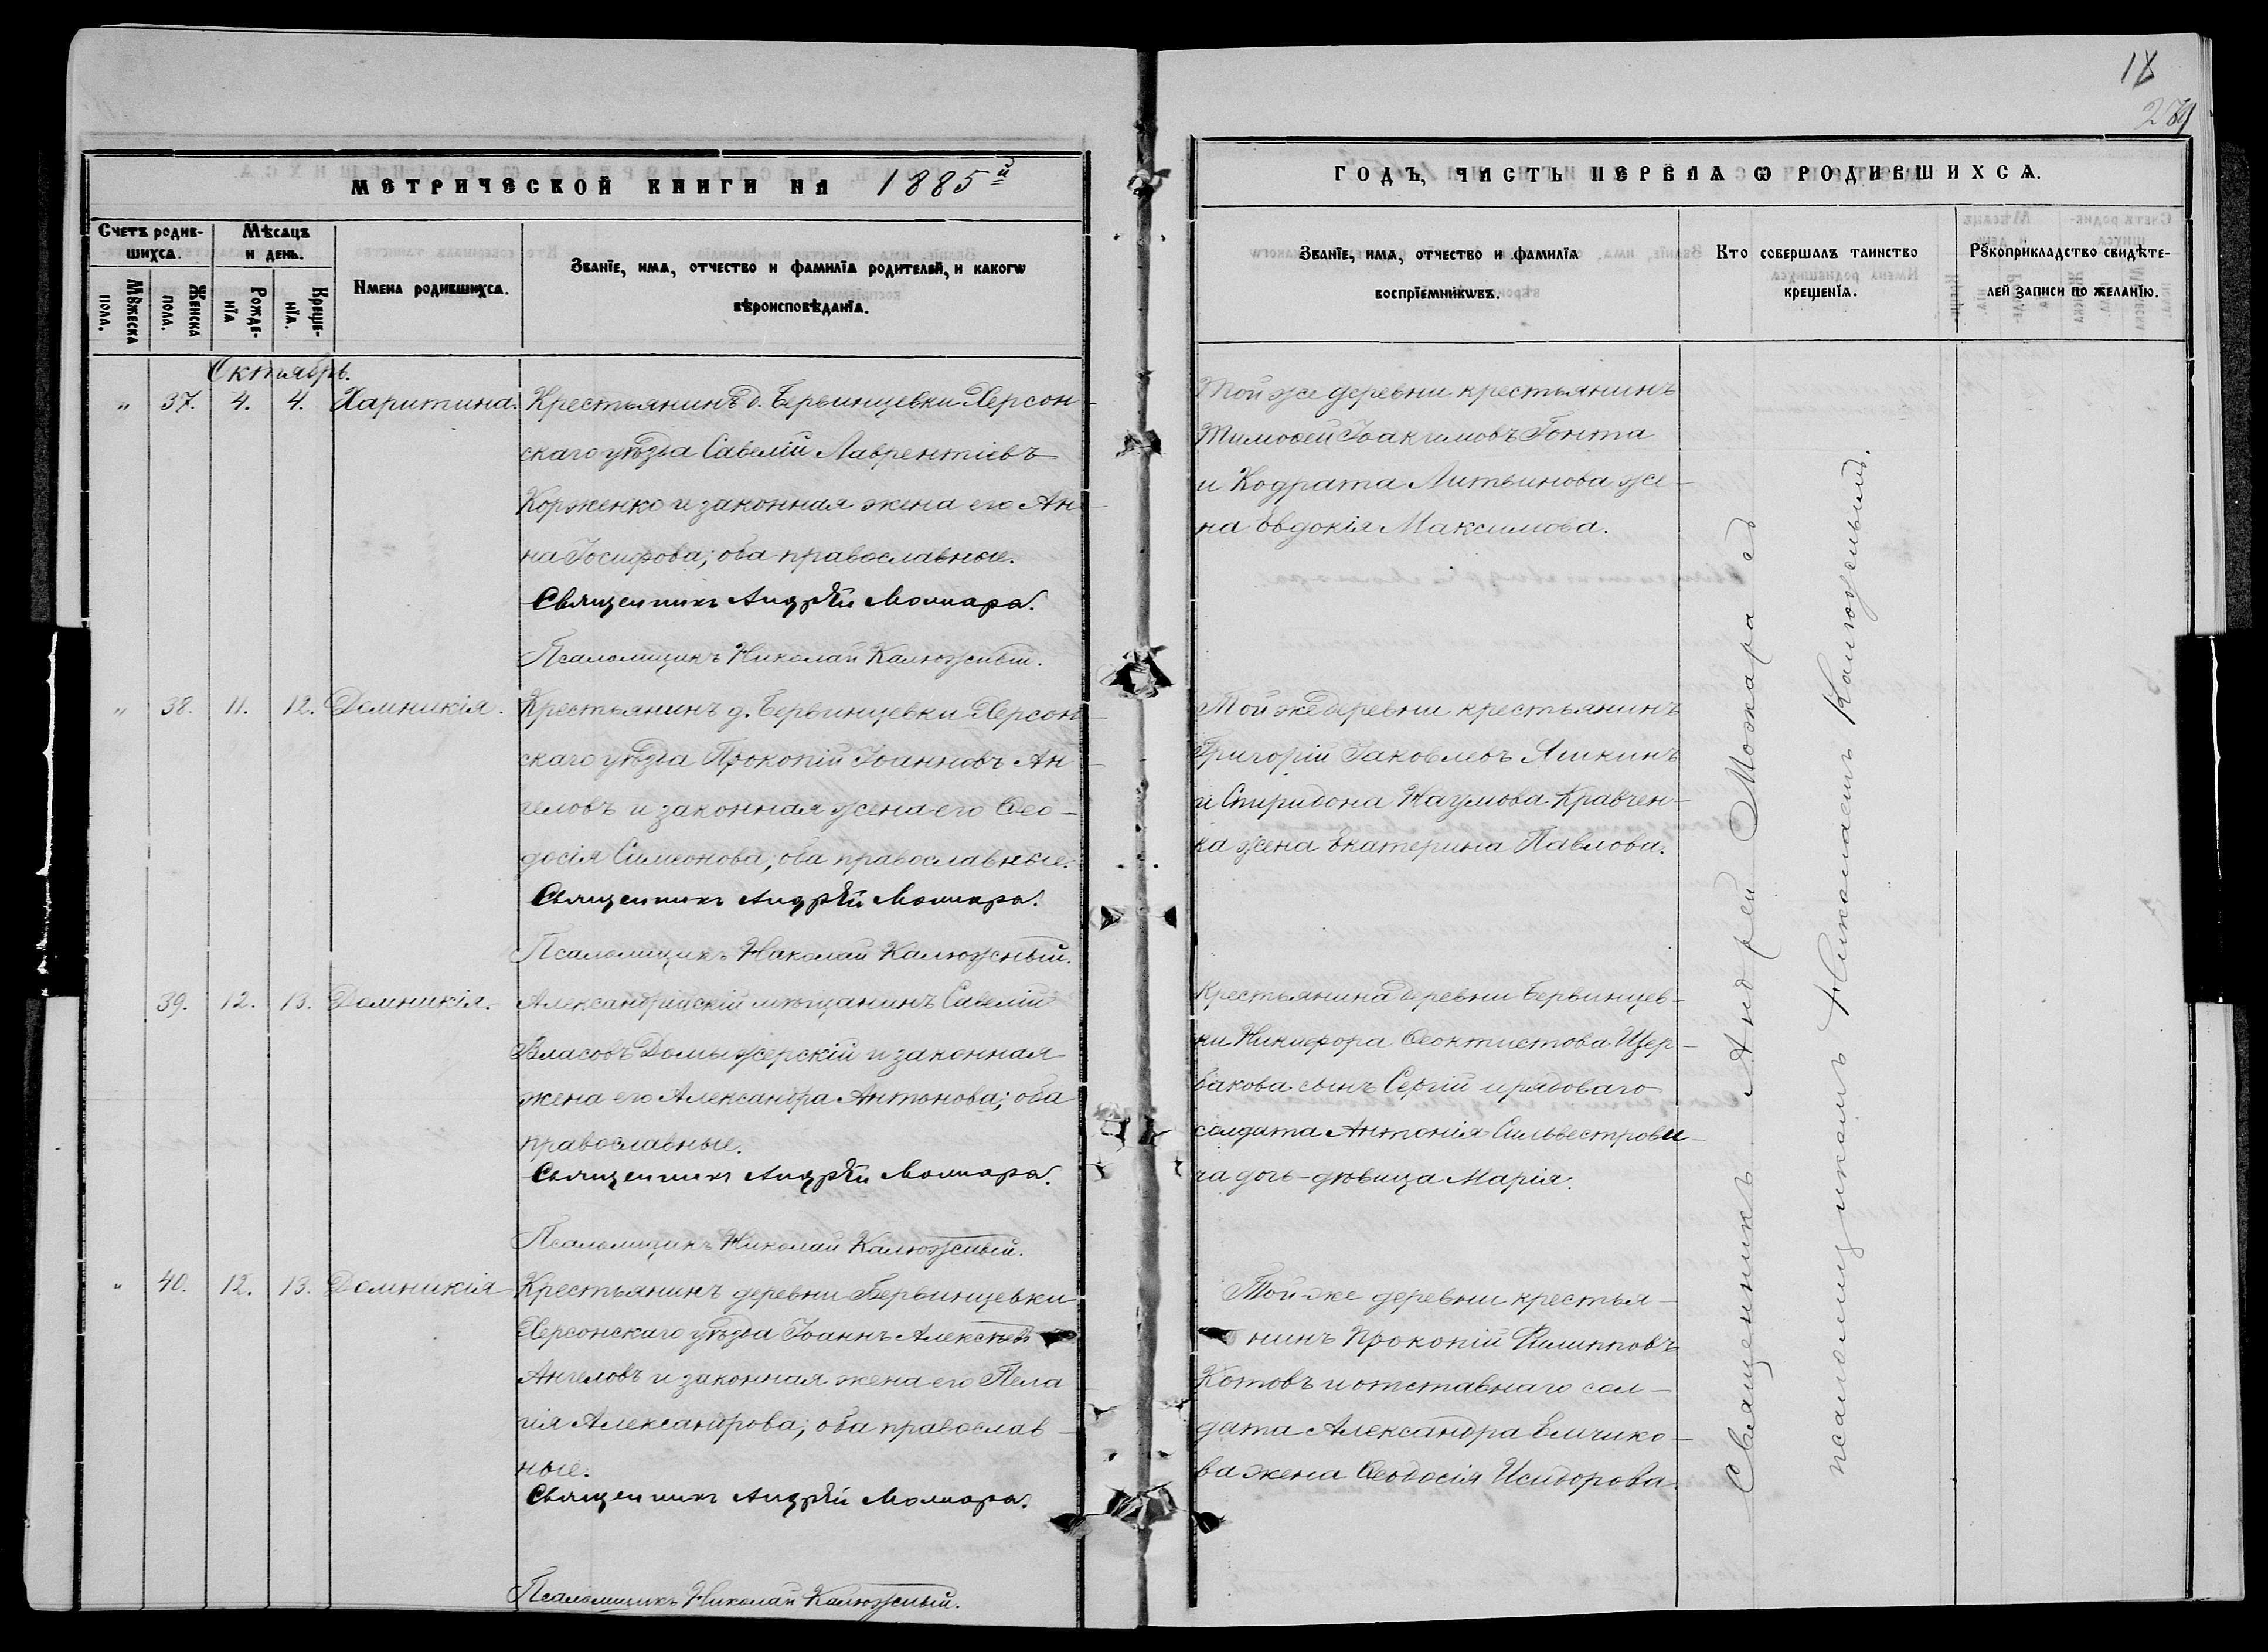 18
МЕТРИЧЕСКОЙ КНИГИ НА 1885й
ГОДЪ, ЧАСТЬ ПЕРВАЯ Ѡ РОДИВШИХСѦ.
Счетъ родив-
шихсѧ.
Мѣсѧцъ
и день.
Мꙋжеска
пола.
Женска
пола.
Рожде-
нїѧ
Креще-
нїѧ.
Имена родившихсѧ.
Званїе, имѧ, отчество и фамилїѧ родителей, и какогѡ
вѣроисповѣданїѧ.
Званїе, имѧ, отчество и фамилїѧ
воспрїемникѡвъ.
Кто совершалъ таинство
крещенїѧ.
Рꙋкоприкладство свидѣте-
лей записи по желанїю.
Октябрь.
" 37. 4. 4. Харитина. Крестьянинъ д. Бервинцевки Херсон-
скаго уѣзда Савелій Лаврентіевъ
Корженко и законная жена его Ан-
на Іосифова; оба православные.
Священникъ Андрѣй Можара.
Псаломщикъ Николай Калюжный.
Той же деревни крестьянинъ
Тимоѳей Іоакимовъ Гонта
и Кодрата Литвинова же-
на Евдокія Максимова.
" 38. 11. 12. Домникія. Крестьянинъ д. Бервинцевки Херсон-
скаго уѣзда Прокопій Іоанновъ Ан-
геловъ и законная жена его Ѳео-
досія Симеонова; оба православные.
Священникъ Андрѣй Можара.
Псаломщикъ Николай Калюжный.
Той же деревни крестьянинъ
Григорій Іаковлевъ Яшкинъ
и Спиридона Наумова Кравчен-
ка жена Екатерина Павлова.
39. 12. 13. Домникія. Александрійскій мѣщанинъ Савелій
Власовъ Домыжерскій и законная
жена его Александра Антонова; оба
православные.
Священникъ Андрѣй Можара.
Псаломщикъ Николай Калюжный.
Крестьянина деревни Бервинцев-
ки Никифора Ѳеоктистова Щер-
бакова сынъ Сергій и рядоваго
солдата Антонія Сильвестрови-
ча дочь-дѣвица Марія.
" 40. 12. 13. Домникія Крестьянинъ деревни Бервинцевки
Херсонскаго уѣзда Іоаннъ Алексѣевъ
Ангеловъ и законная жена его Пела
гія Александрова; оба православ-
ные.
Священникъ Андрѣй Можара.
Псаломщикъ Николай Калюжный.
Той же деревни крестья-
нинъ Прокопій Филипповъ
Котовъ и отставнаго сол-
дата Александра Еличико-
ва жена Ѳеодосія Исидорова.
Священникъ Андрей Можара съ
псаломщикомъ Николаемъ Калюжнымъ.